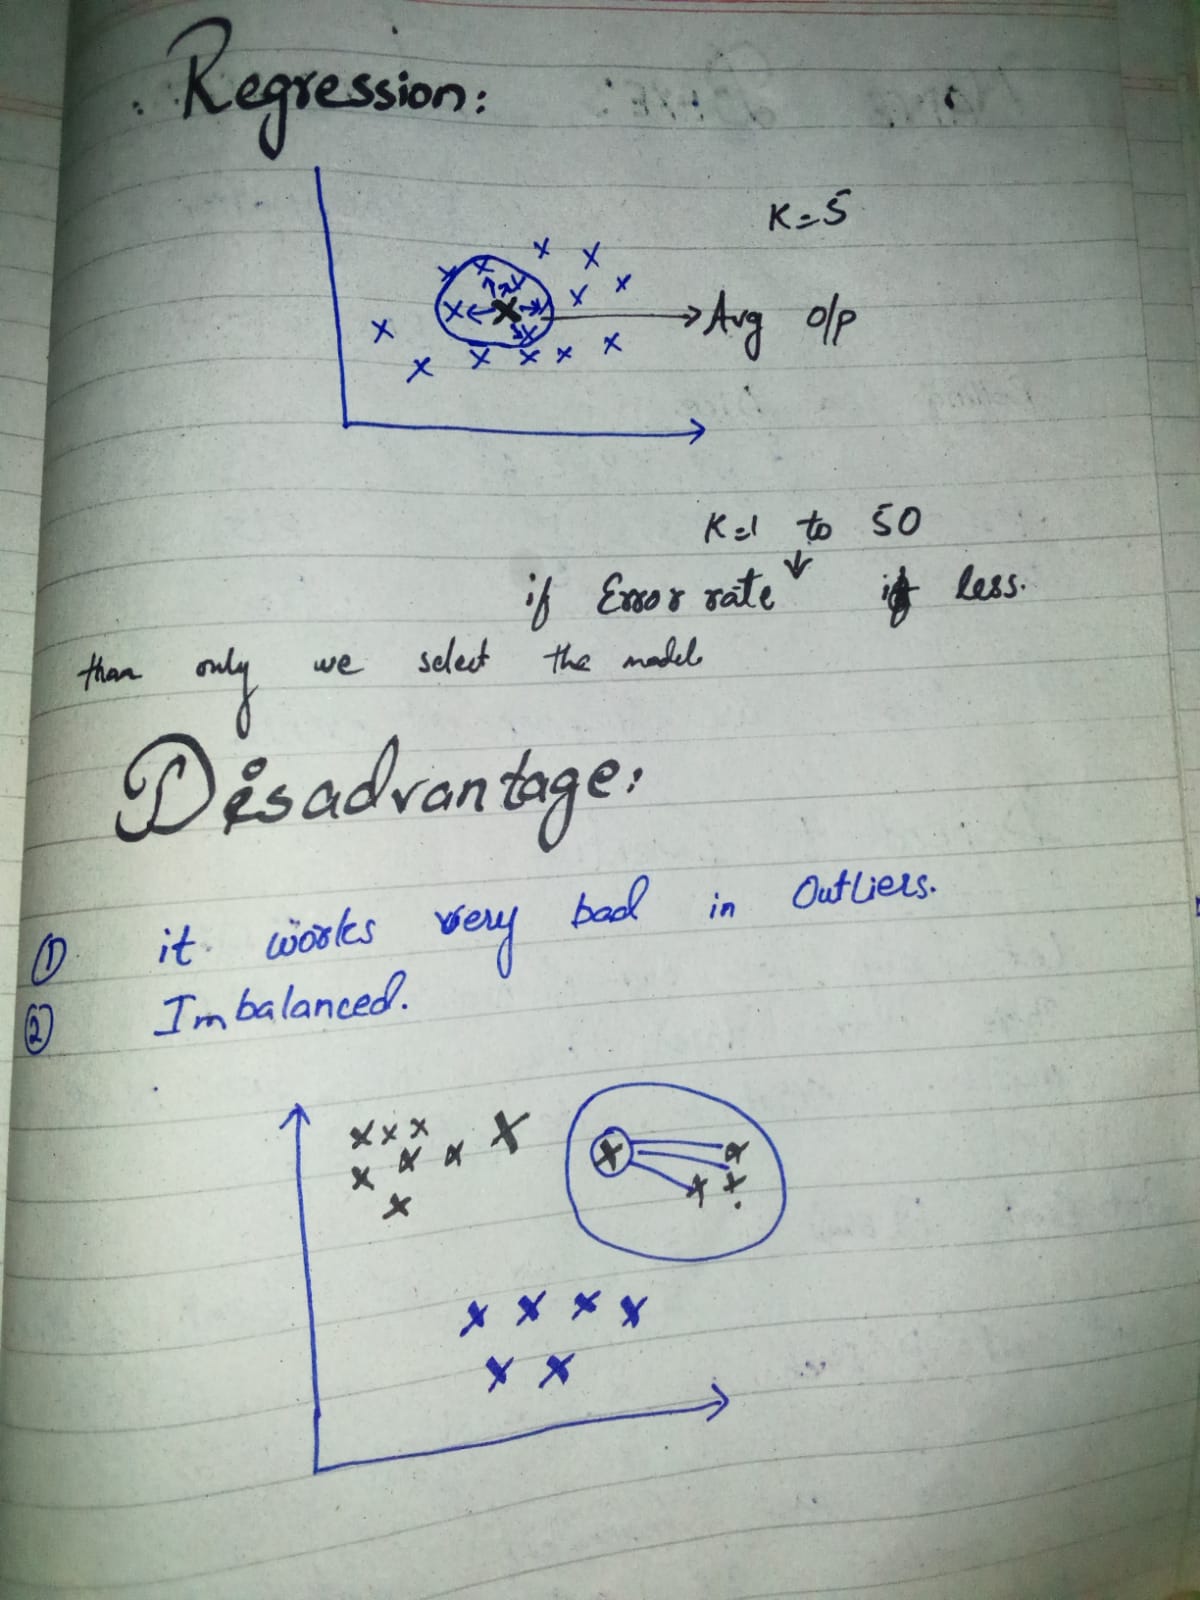 Regression:
K=5
Avg o/p
K=1 to 50
if Error rate ↓ if less.
than only we select the model
Disadvantage:
① it works very bad in Outliers.
② Imbalanced.